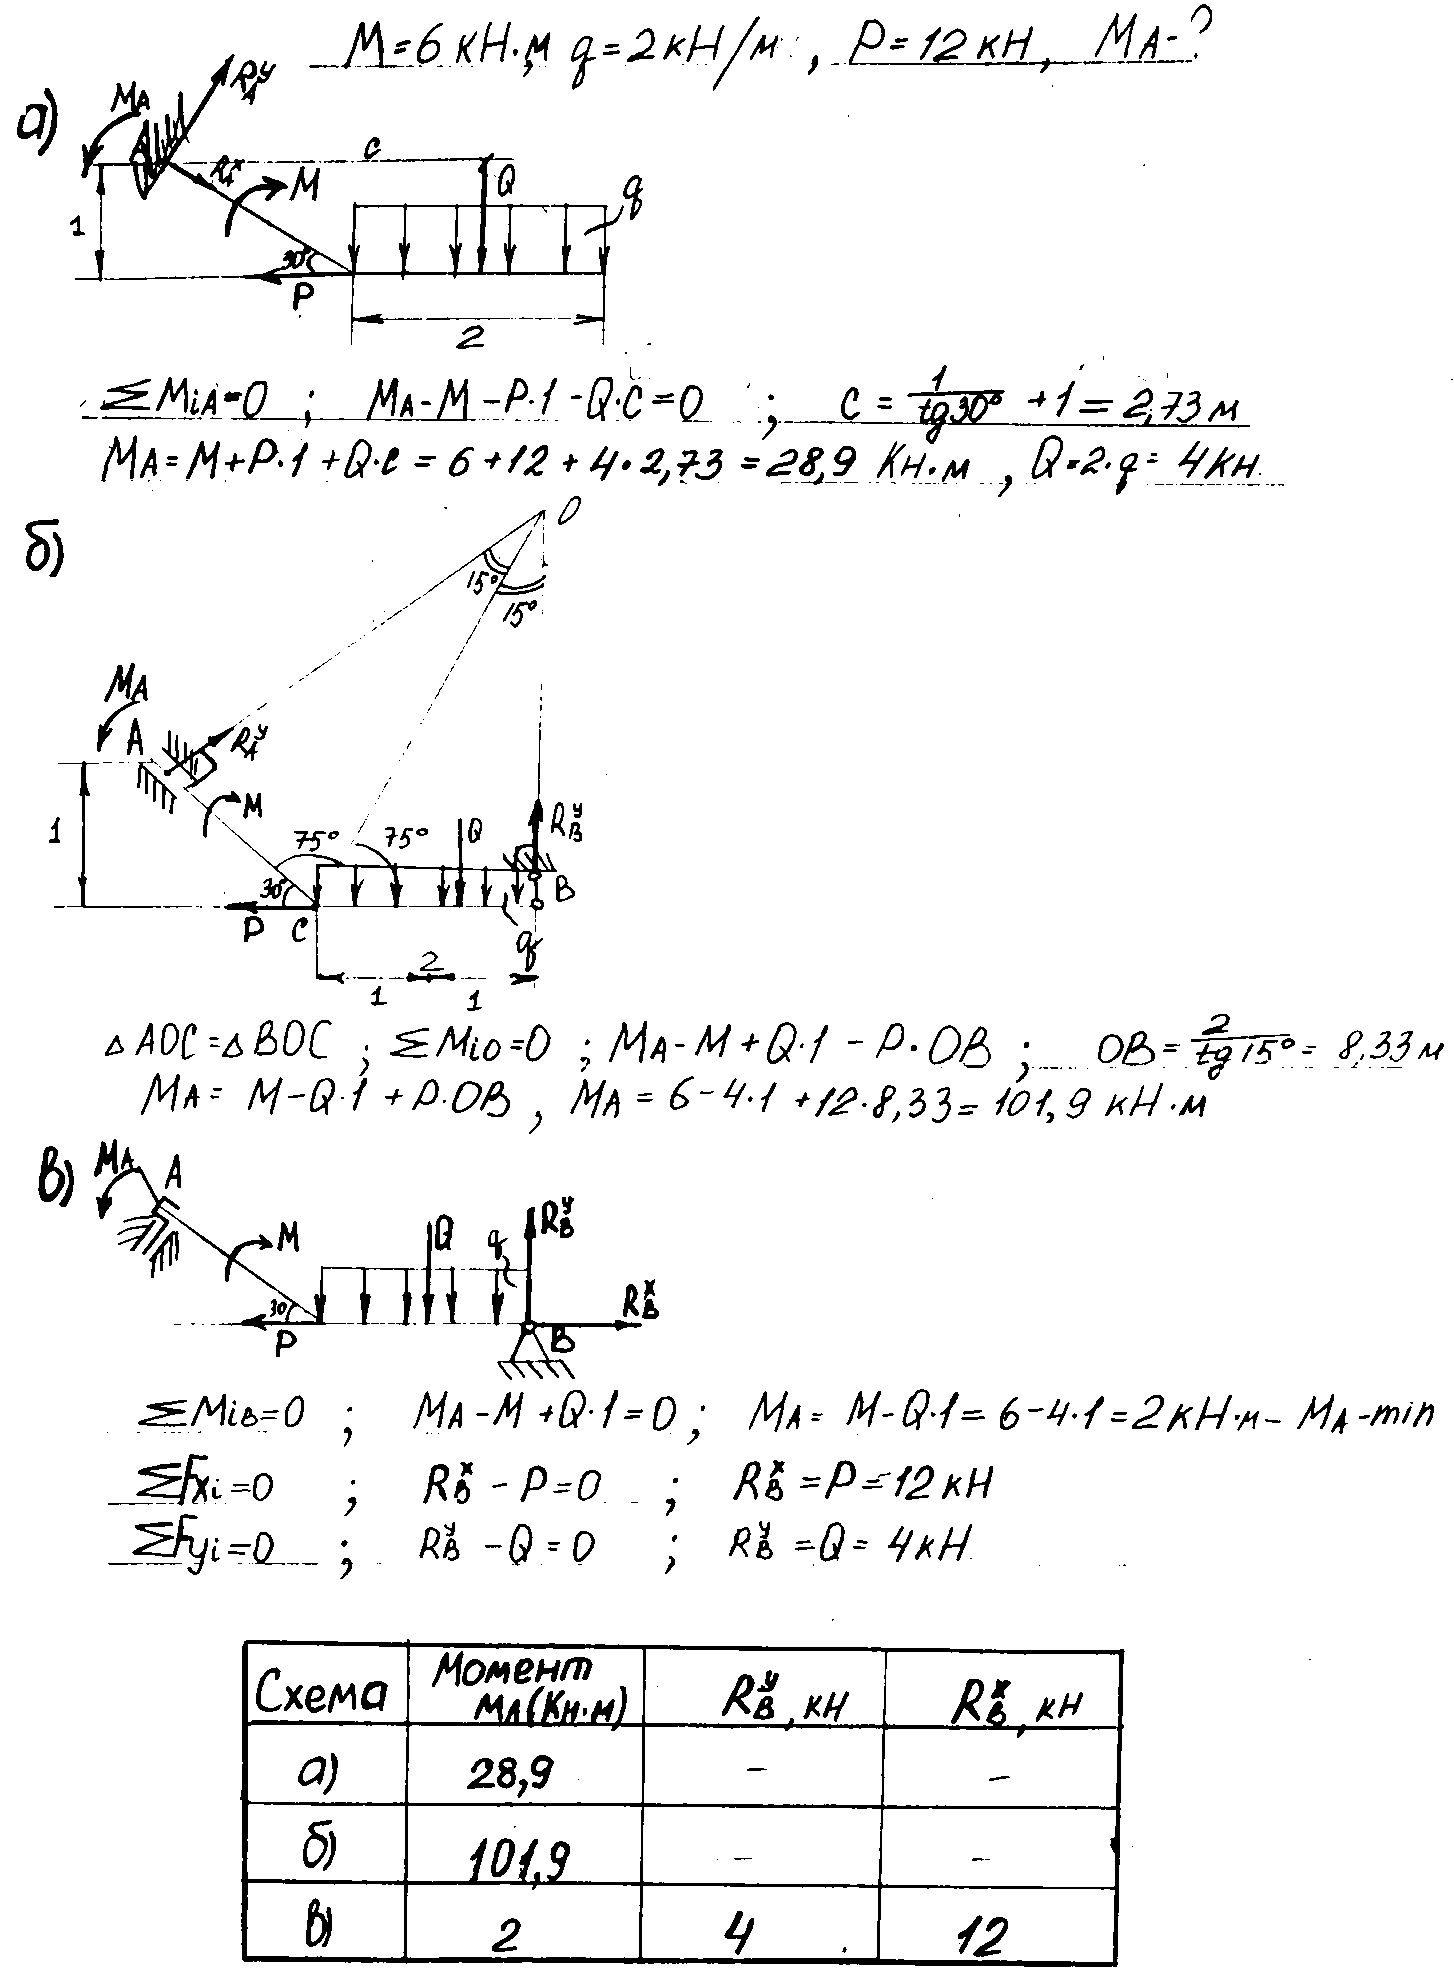 M=6 кН·м, q=2кН/м, P=12кН, MA-?
а)
MA
RAy
A
RAx
M
C
Q
q
1
30°
P
2
ΣMiA=0 ; MA-M-P·1-Q·C=0 ; C=1/tg30°+1=2,73м
MA=M+P·1+Q·C=6+12+4·2,73=28,9 Кн·м, Q=2·q=4кН
б)
O
15°
15°
MA
A
RAy
M
1
75°
75°
Q
RBy
B
30°
P
C
q
2
1
1
△AOC=△BOC ; ΣMiO=0 ; MA-M+Q·1-P·OB ; OB=2/tg15°=8,33м
MA=M-Q·1+P·OB, MA=6-4·1+12·8,33=101,9 кН·м
в)
MA
A
M
Q
q
RBy
RBx
30
P
B
ΣMiB=0 ; MA-M+Q·1=0 ; MA=M-Q·1=6-4·1=2кН·м-MA-min
ΣFxi=0 ; RBx-P=0 ; RBx=P=12кН
ΣFyi=0 ; RBy-Q=0 ; RBy=Q=4кН
Схема Момент МА(Кн·м) RBy, кН RBx, кН
а) 28,9 - -
б) 101,9 - -
в) 2 4 12